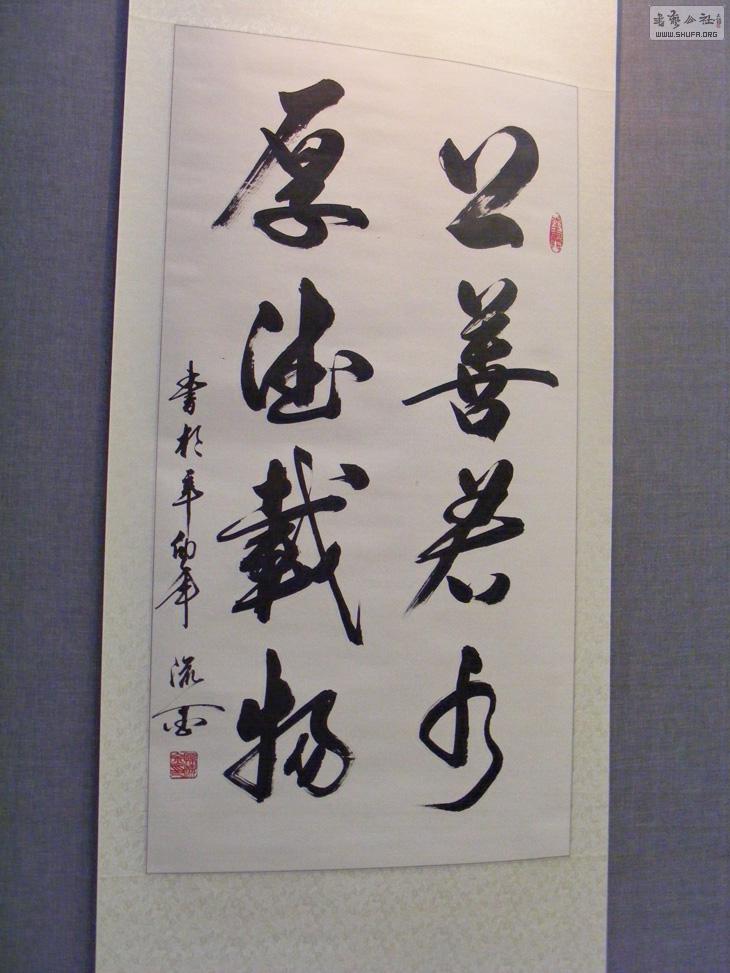 上善若水
厚德载物
書於辛卯年 流雲
書藝公社
WWW.SHUFA.ORG